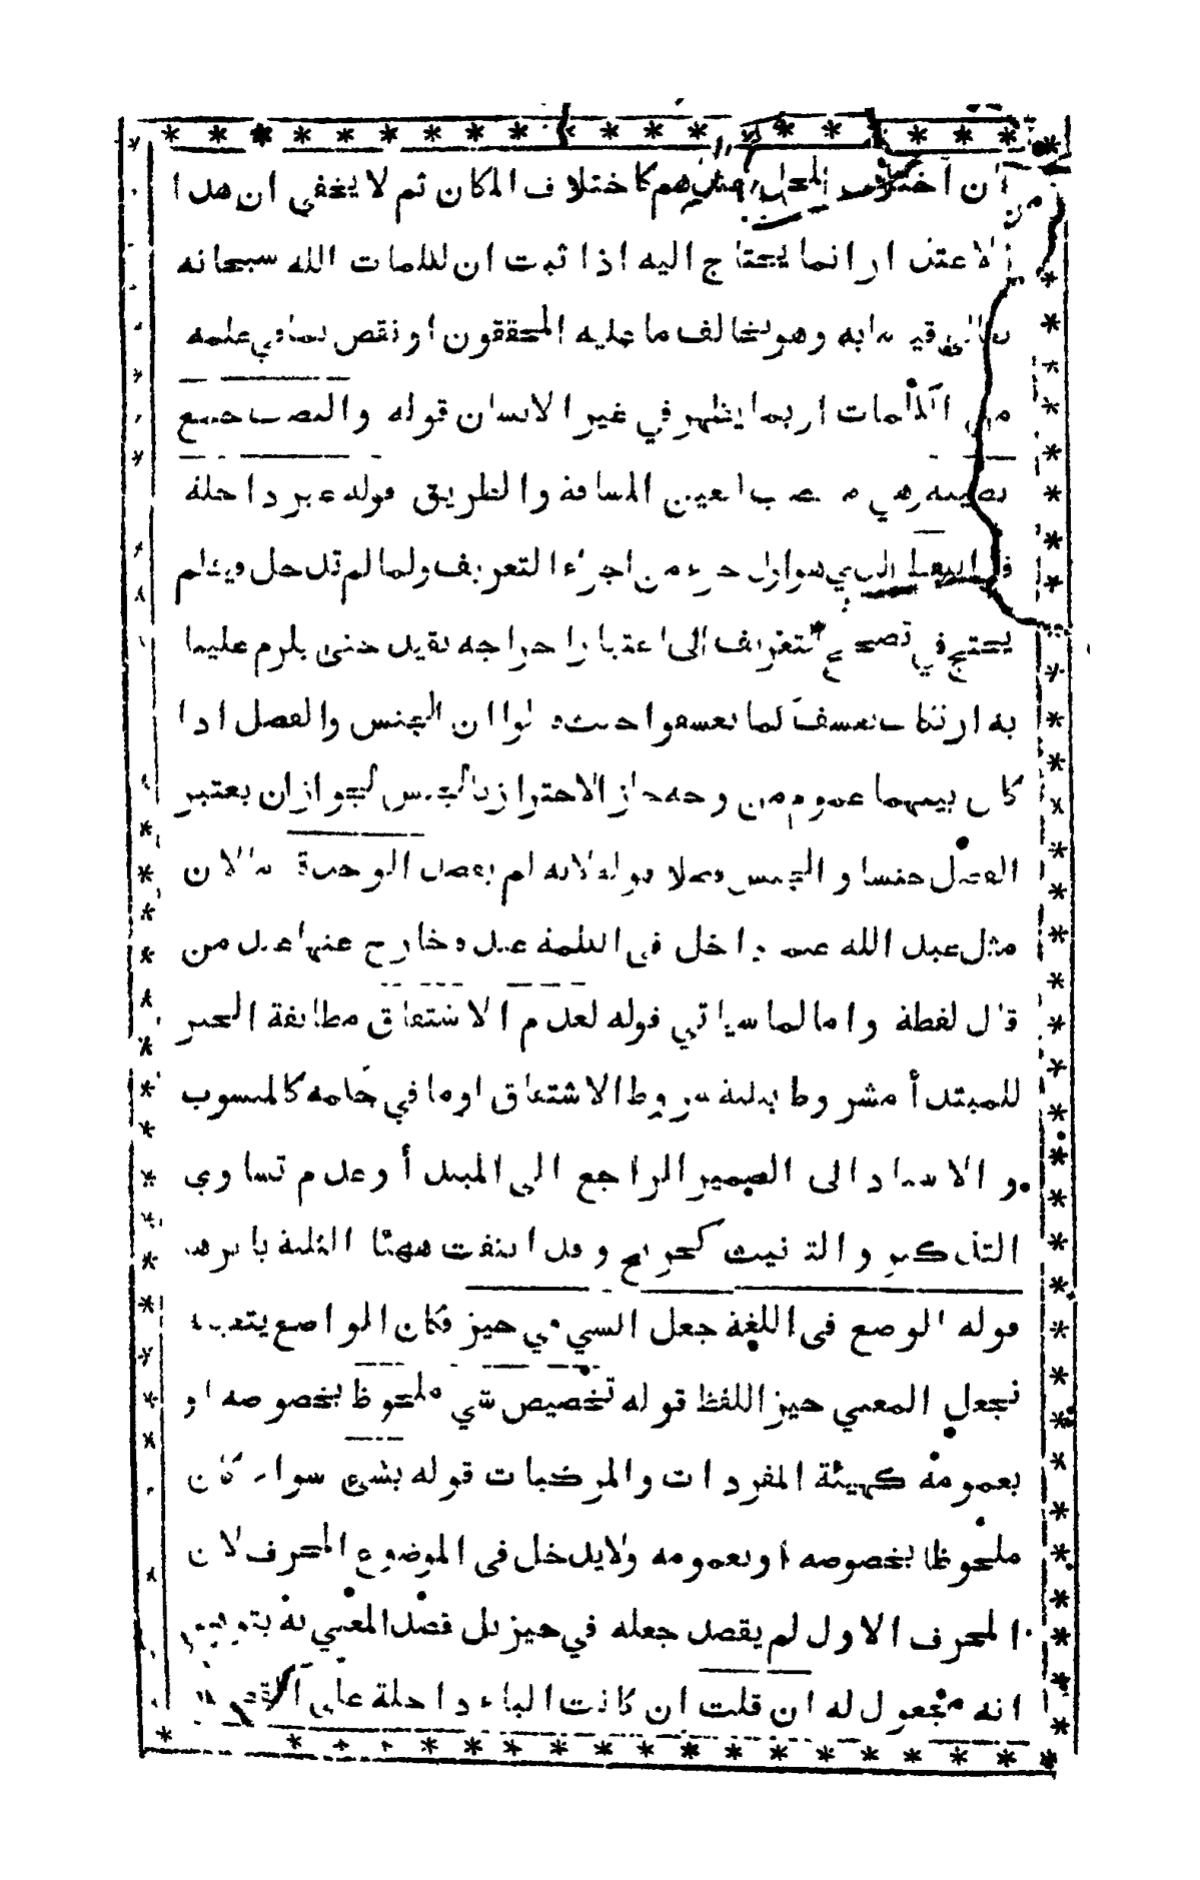 ان اختلاف المحل عندهم كاختلاف المكان ثم لا يخفي ان هذا
الاعتذار انما يحتاج اليه اذا ثبت ان لكلمات الله سبحانه
وهو يخالف ما عليه المحققون او نقص بما في علمه
من الكلمات اربما يظهر في غير الانسان قوله والنصب جمع
نصيبه وهي المسافة والطريق قوله غير داخلة
في جزء من اجزاء التعريف ولما لم تدخل فيه لم
يحتج في تصحيح التعريف الى اعتبار اخراجه بقيد حتى يلزم علينا
به ارتكاب تعسف لما تعسفوا حيث قالوا ان الجنس والفصل اذا
كان بينهما عموم من وجه جاز الاحتراز بالجنس لجواز ان يعتبر
الفصل جنسا والجنس فصلا قوله لانه لم يقصد الوحدة
مثل عبد الله علما داخل في الكلمة عند وخارج عنها عند من
قال لفظة واما لما سياتي قوله لعدم الاشتقاق مطابقة الخبر
للمبتدأ مشروط بثلثة شروط الاشتقاق او ما في حكمه كالمنسوب
والاسناد الى الضمير الراجع الى المبتدأ وعدم تساوي
التذكير والتانيث كجريح وقد انتفت ههنا الثلثة باسرها
قوله الوضع في اللغة جعل الشي في حيز فكان الواضع
بجعل المعنى حيز اللفظ قوله تخصيص شي ملحوظ بخصوصه او
بعمومه كهيئة المفردات والمركبات قوله بشئ سواء كان
ملحوظا بخصوصه او بعمومه ولا يدخل في الموضوع المحرف لان
المحرف الاول لم يقصد جعله في حيز بل قصد المعنى به بتوهم
انه مجعول له ان قلت ان كانت الباء داخلة على